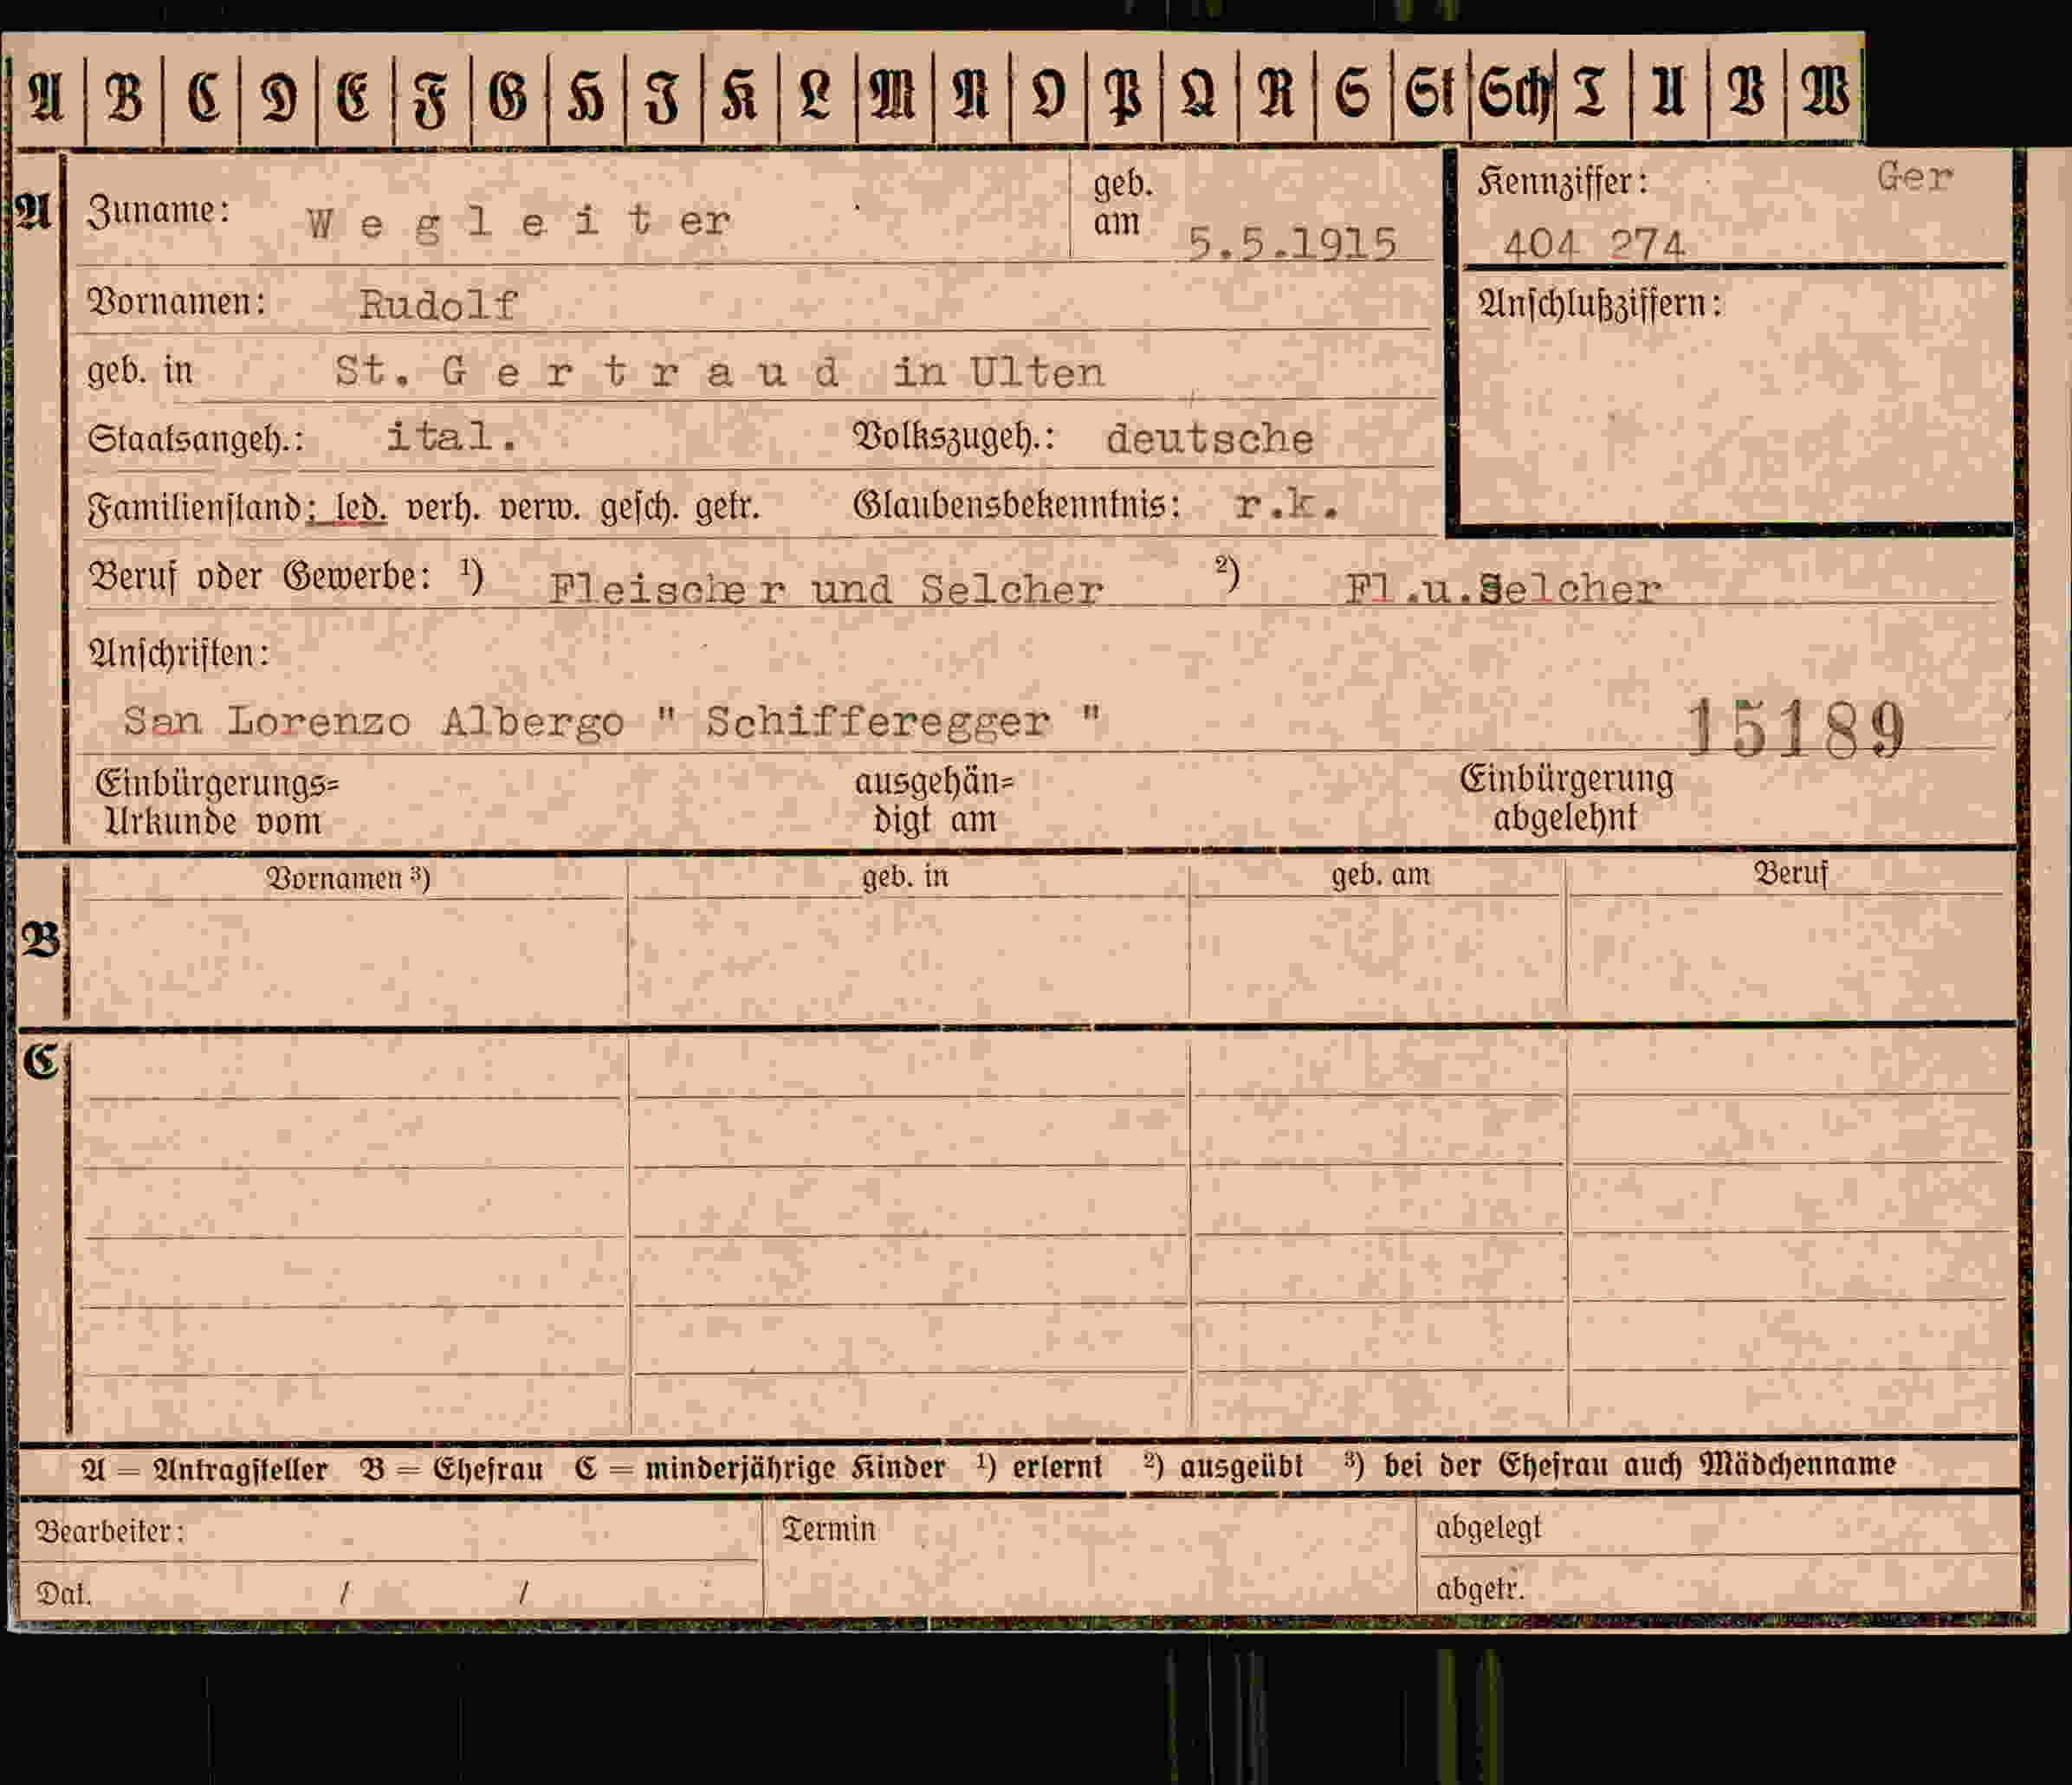 A B C D E F G H J K L M N O P Q R S St Sch T U V W
A Zuname: Wegleiter geb. am 5.5.1915
Kennziffer: Ger
404 274
Vornamen: Rudolf
Anschlußziffern:
geb. in St. Gertraud in Ulten
Staatsangeh.: ital. Volkszugeh.: deutsche
Familienstand: led. verh. verw. gesch. getr. Glaubensbekenntnis: r.k.
Beruf oder Gewerbe: ¹) Fleischer und Selcher ²) Fl.u.Selcher
Anschriften:
San Lorenzo Albergo " Schifferegger " 15189
Einbürgerungs= ausgehän= Einbürgerung
Urkunde vom digt am abgelehnt
Vornamen ³) geb. in geb. am Beruf
B
C
A = Antragsteller B = Ehefrau C = minderjährige Kinder ¹) erlernt ²) ausgeübt ³) bei der Ehefrau auch Mädchenname
Bearbeiter: Termin abgelegt
Dat. / / abgetr.